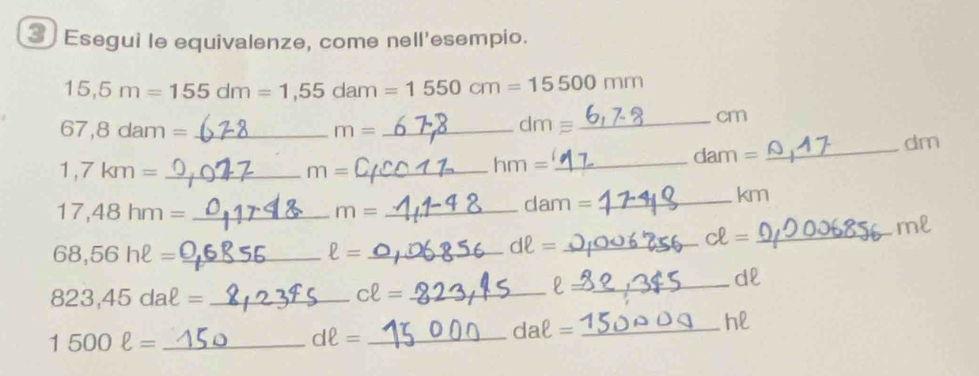 3 Esegui le equivalenze, come nell'esempio.
15,5 m = 155 dm = 1,55 dam = 1 550 cm = 15 500 mm
67,8 dam = 678 m = 67,8 dm = 6,78 cm
1,7 km = 0,017 m = 0,0017 hm = 17 dam = 0,17 dm
17,48 hm = 0,1748 m = 1,748 dam = 174,8 km
68,56 hℓ = 0,6856 ℓ = 0,06856 dℓ = 0,006856 cℓ = 0,0006856 mℓ
823,45 daℓ = 8,2345 cℓ = 823,45 ℓ = 82,345 dℓ
1 500 ℓ = 150 dℓ = 15 000 daℓ = 150000 hℓ